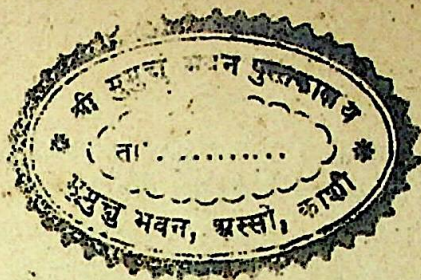 श्री मुमुक्षु भवन पुस्तकालय
ता॰ ...........
मुमुक्षु भवन, अस्सी, काशी